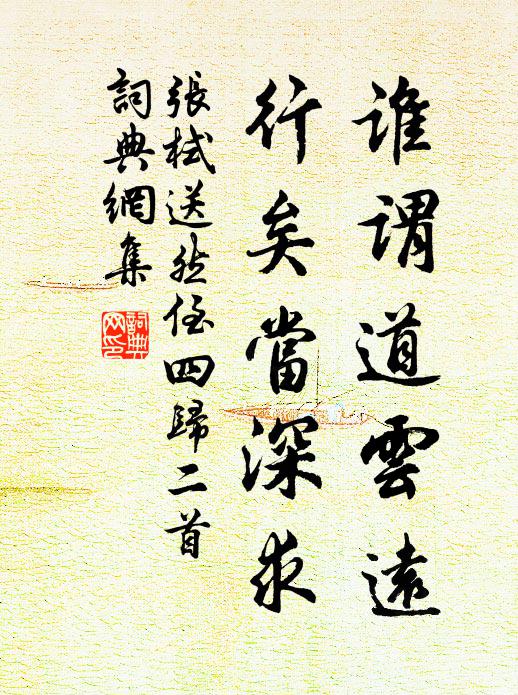 誰謂道雲遠
行矣當深求
張栻送然侄西歸二首
詞典網集
詞典網印